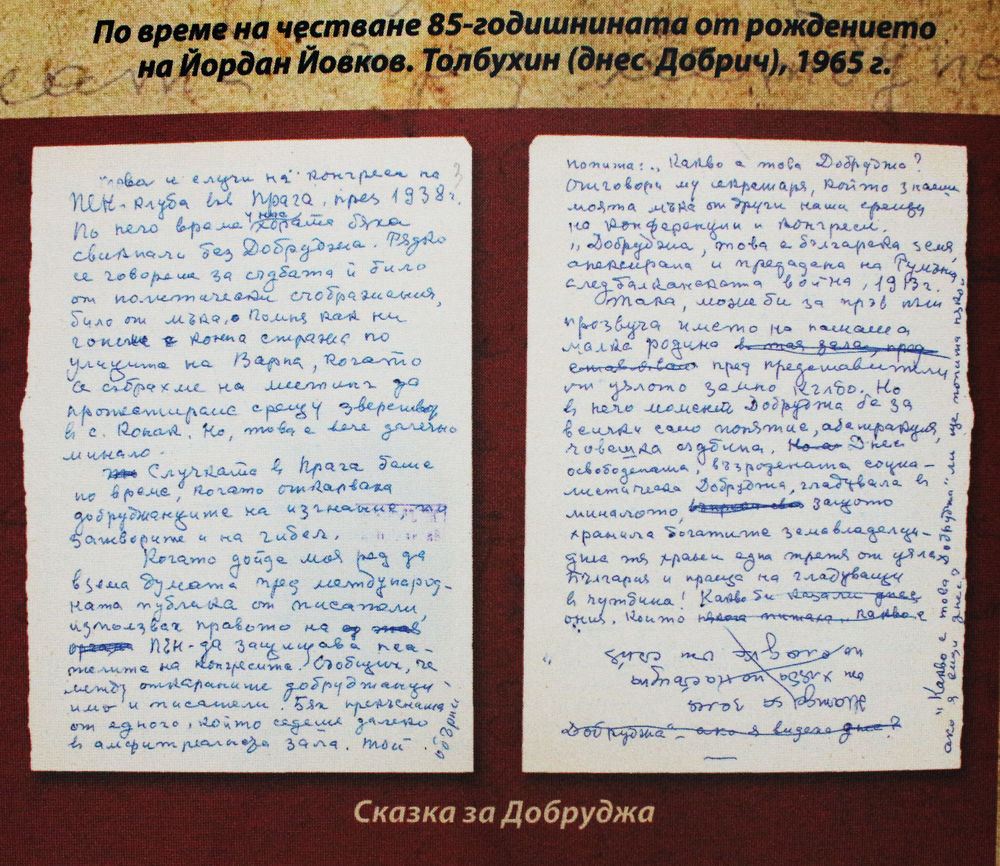 По време на честване 85-годишнината от рождението
на Йордан Йовков. Толбухин (днес Добрич), 1965 г.
3
това се случи на конгреса на
ПЕН-клуба във Прага, през 1938 г.
По него време у нас хората бяха
свикнали без Добруджа. Рядко
се говореше за съдбата ѝ било
от политически съображения,
било от мъка, Помня как ни
гонеше конна стража по
улиците на Варна, когато
се събрахме на митинг да
протестираме срещу зверствата
в с. Конак. Но, това е вече далечно
минало.
Случката в Прага беше
по време, когато откарваха
добруджанците на изгнание, по
затворите и на гибел.
Когато дойде моя ред да
взема думата пред международ-
ната публика от писатели,
използвах правото на
ПЕН-да защищава
на конгресите. Съобщих, че
между откараните добруджанци-
има и писатели. Бях прекъсната
от едного, който седеше далеко
в амфитеатрална зала. Той
обърни
попита: „Какво е това Добруджа?
Отговори му секретаря, който знаеше
моята мъка от други наши срещи
на конференции и конгреси.
„Добруджа, това е българска земя,
анексирана и предадена на Румъния
след балканската война, 1913 г.
Така, може би за пръв път
прозвуча името на нашата
малка родина в тая зала, пред
пред представители
от цялото земно кълбо. Но
в него момент Добруджа бе за
всички само понятие, абстракция,
човешка съдбина. Днес
освободената, възродената социа-
листическа Добруджа, гладувала в
миналото, защото
хранила богатите земевладелци-
днес тя храни една трета от цяла
България и праща на гладуващи
в чужбина! Какво би казали днес
ония, които питаха какво е
Добруджа - ако я видеха днес?
„Какво е това Добруджа" ли ще попита някой
ако я види днес?
Сказка за Добруджа